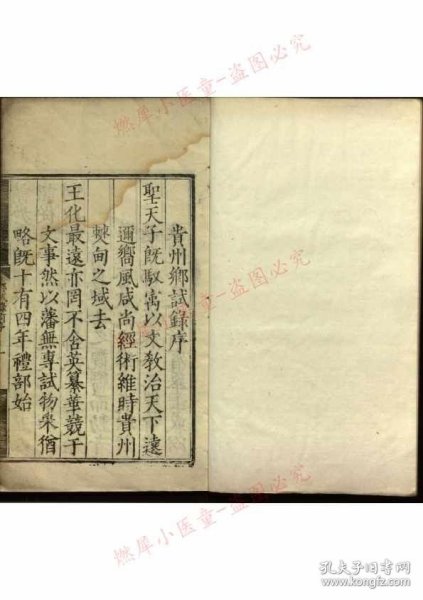 貴州鄉試錄序
聖天子既馭寓以文教治天下遠
邇嚮風咸尚經術維時貴州
僰甸之域去
王化最遠亦罔不含英纂華競于
文事然以藩無專試物采猶
略既十有四年禮部始
燃犀小医童-盗图必究
燃犀小医童-盗图必究
燃犀小医童-盗图必究
孔夫子旧书网
www.kongfz.com